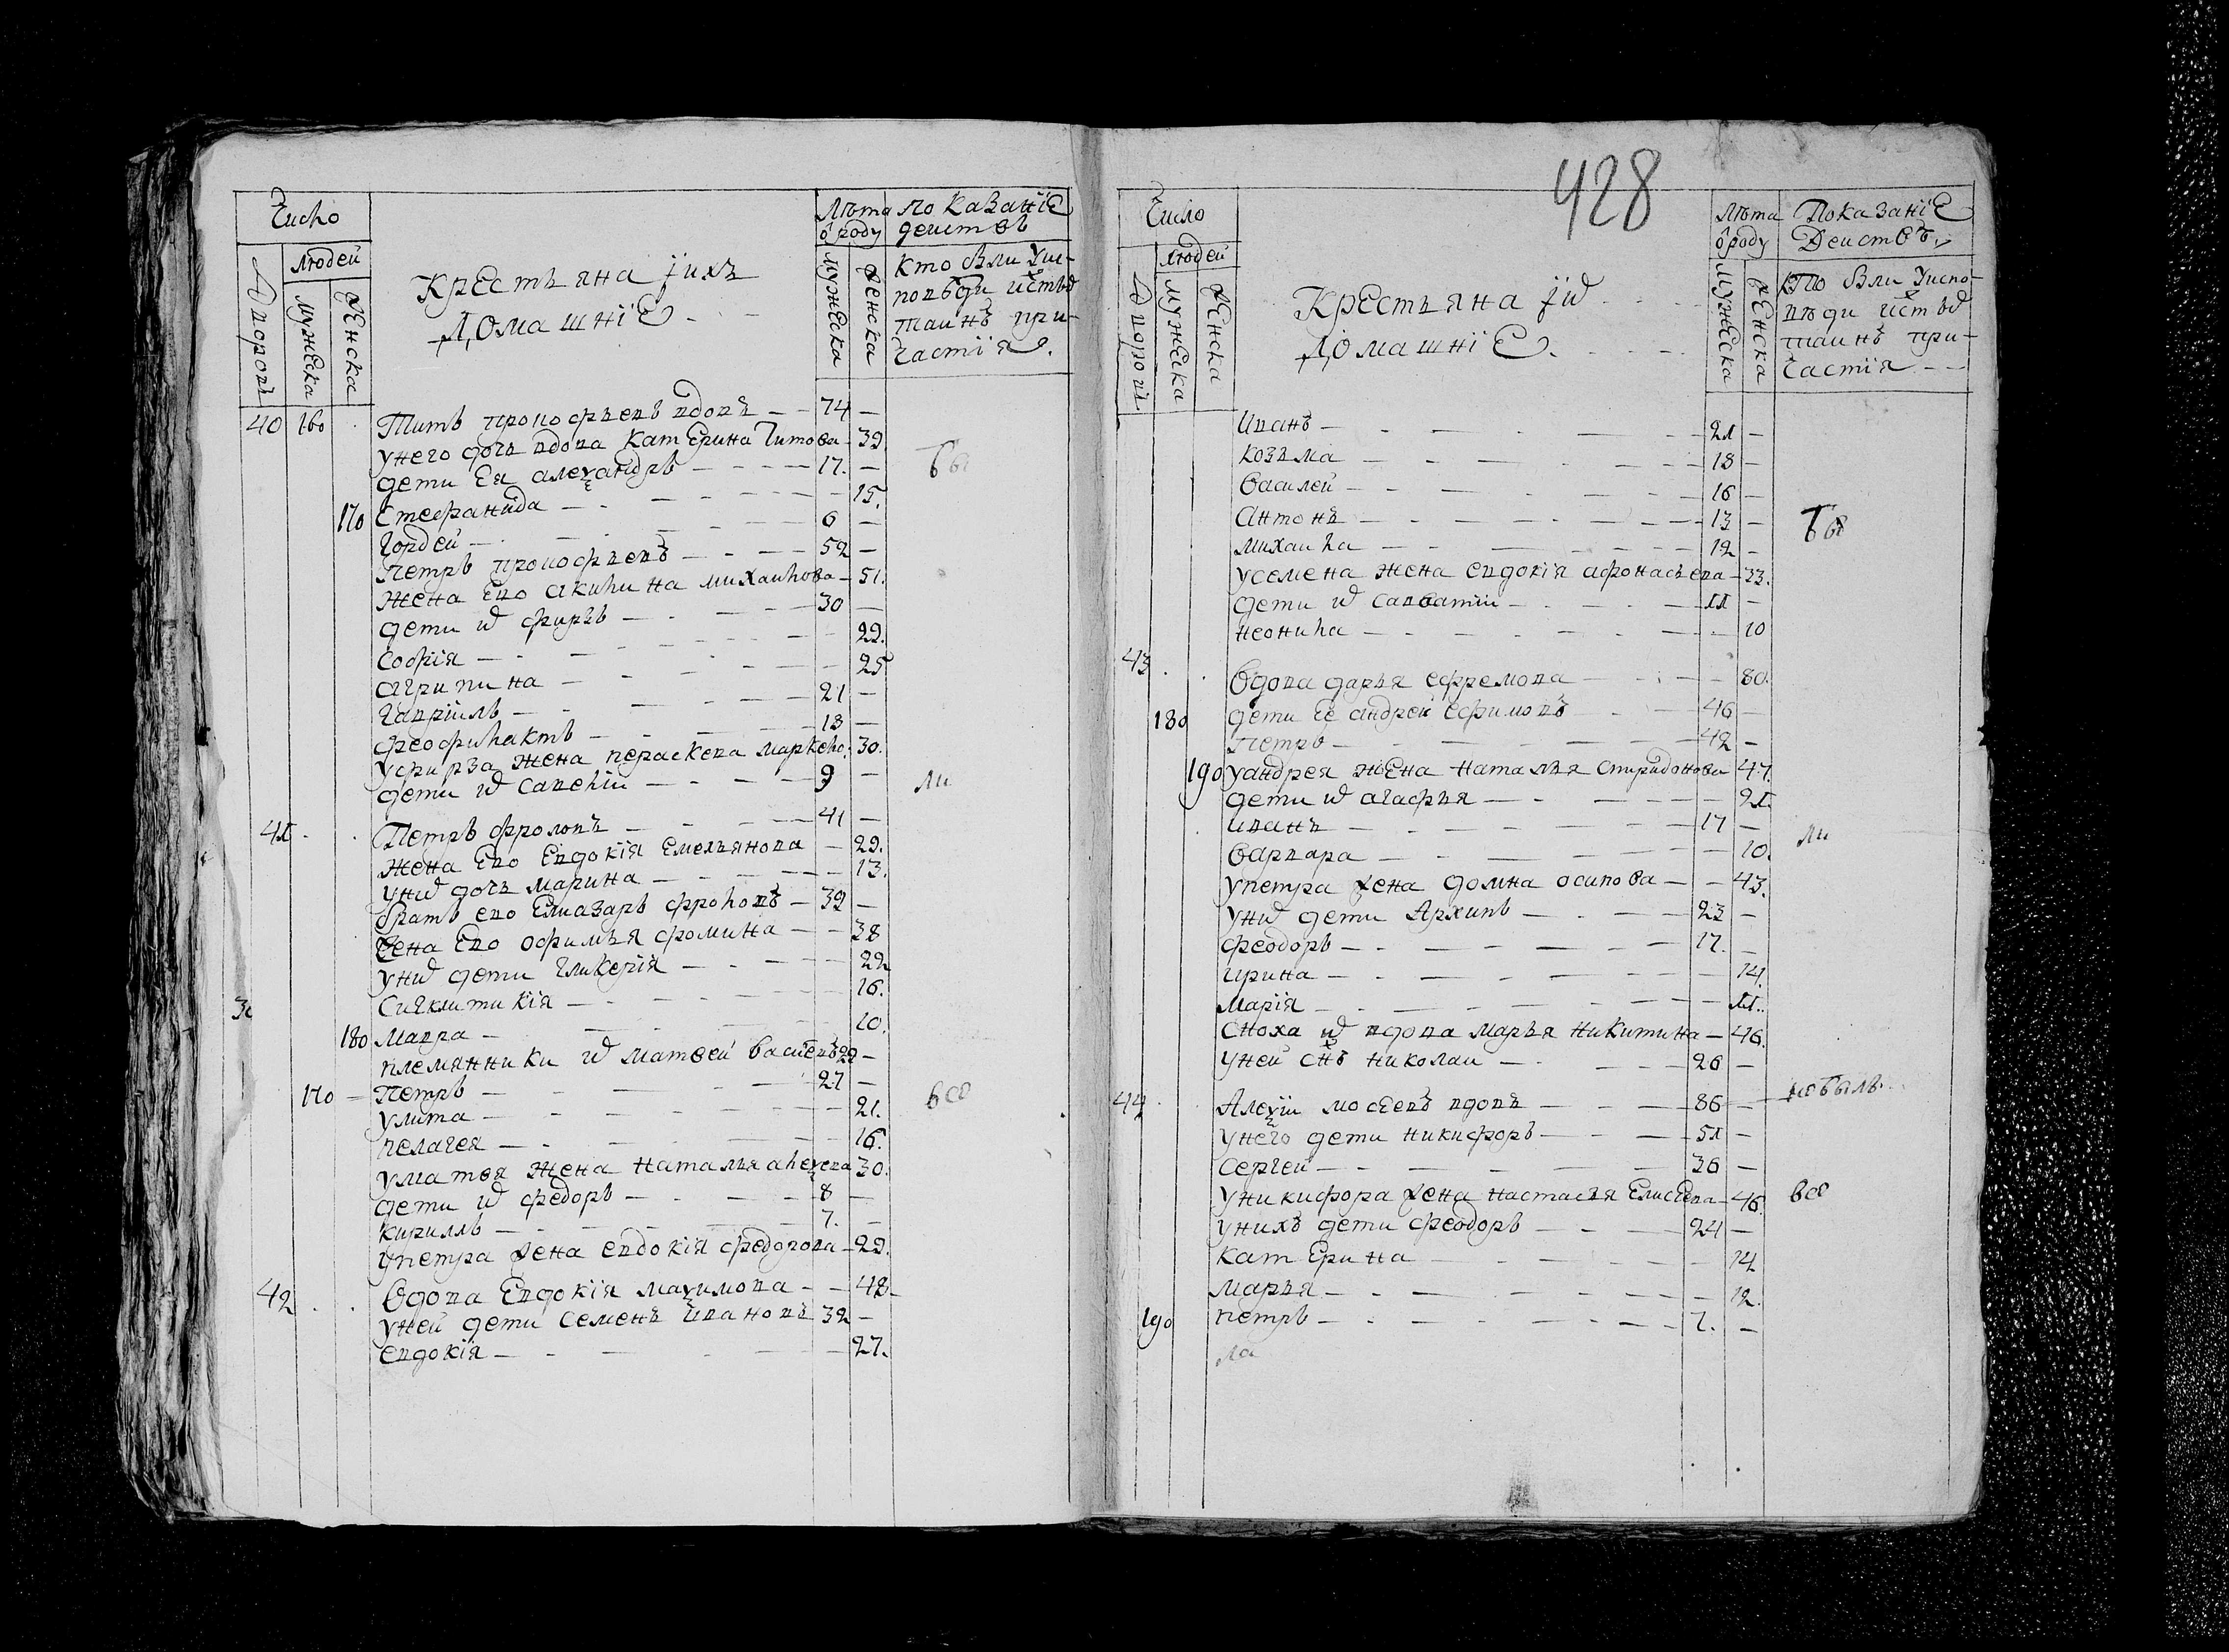 Число
Людей
Дворовъ
мужеска
женска
Крестьяна іихъ
Домашніе
Лѣта
ѿроду
мужеска
женска
показаніе
деиствъ
кто былъ уис-
повѣди исты
таинъ при-
частія.
40 160 Титъ прокофьевъ вдовъ 74
унего дочь вдова катерина титова 39
дети Ея алеѯандръ 17.
170 Стефанида 15.
Гордей 6
Петръ прокофьевъ 52
Жена ево акилина михаилова 51.
дети их фирзъ 30
Софія 29.
Агрипина 25
Гавріилъ 21
феофилактъ 13
уфирза жена параскева маркело: 30.
дети их савелій 9
41 Петръ фроловъ 41
жена ево Евдокія Емельянова 29.
уних дочь марина 13.
братъ ево Елиазаръ фроловъ 39
жена ево офимья фомина 38
уних дети гликерія 22
Сигклитикія 16.
180 Мавра 10.
племянники их матвей василевъ 29
170 Петръ 27
улита 21.
пелагея 16.
уматвея жена наталья алеѯева 30.
дети их федоръ 8
кириллъ 7.
упетра жена евдокія федорова 29.
42 вдова Евдокія маѯимова 48
уней дети семенъ ивановъ 32
евдокія 27.
бы
ли
все
428
Число
Людей
Дворовъ
мужеска
женска
Крестьяна іих
Домашніе
Лѣта
ѿроду
мужеска
женска
Показаніе
Деиствъ
кто были уиспо-
вѣди исты
таинъ при-
частія
Иванъ 21
козьма 18
василей 16
антонъ 13
михаила 12
усемена жена евдокія афонасьева 33.
дети их савватіи 11
неонила 10
43 вдова дарья ефремова 80.
180 дети Ее андрей ефимовъ 46
Петръ 42
190 уандрея жена наталья спиридонова 47.
дети их агафья 21.
иванъ 17
варвара 10.
упетра жена домна осипова 43.
уних дети Архипъ 23
феодоръ 17.
ирина 14.
марія 11.
сноха их вдова марья никитина 46.
уней снъ николаи 26
44 Алеѯіи мосеевъ вдовъ 86
унего дети никифоръ 51
сергей 36
уникифора жена настасья Елисеева 46.
унихъ дети феодоръ 24
катерина 14
марья 12.
190 петръ 7.
ла
бы
ли
небылъ
все